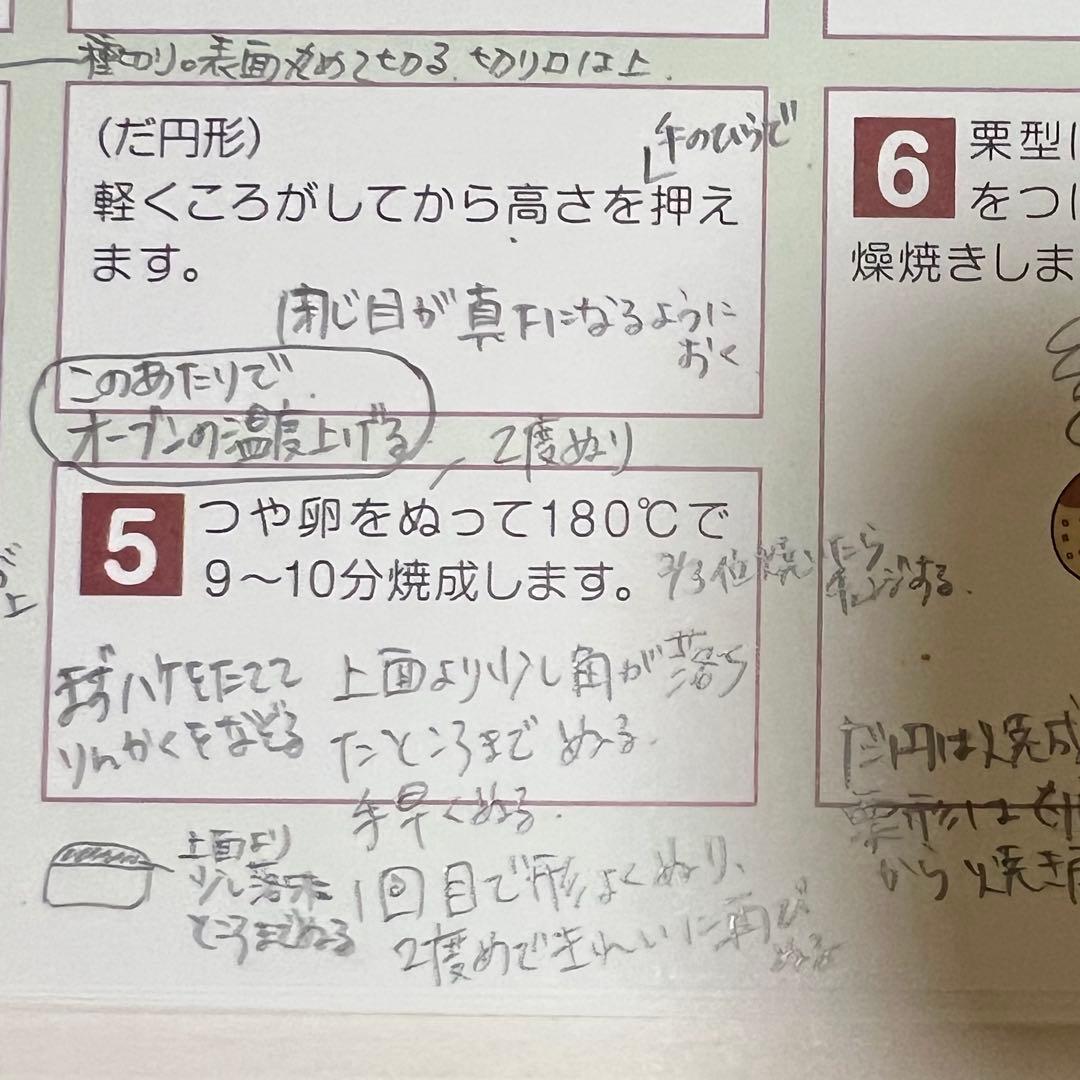 種切り。表面丸めて切る。切り口は上.
(だ円形)
手のひらで
軽くころがしてから高さを押え
ます。
閉じ目が真下になるように
おく
このあたりで
オーブンの温度上げる
2度ぬり
5 つや卵をぬって180℃で
9〜10分焼成します。
2/3位焼いたら
する.
まずハケをたてて
りんかくをなぞる
上面より少し角が落ち
たところまでぬる.
手早くぬる.
上面より
少し落ちた
ところまでぬる
1回目で形よくぬり、
2度めできれいに再び
ぬる
6 栗型
をつ
燥焼きしま
だ円は焼成
栗形は
から焼き